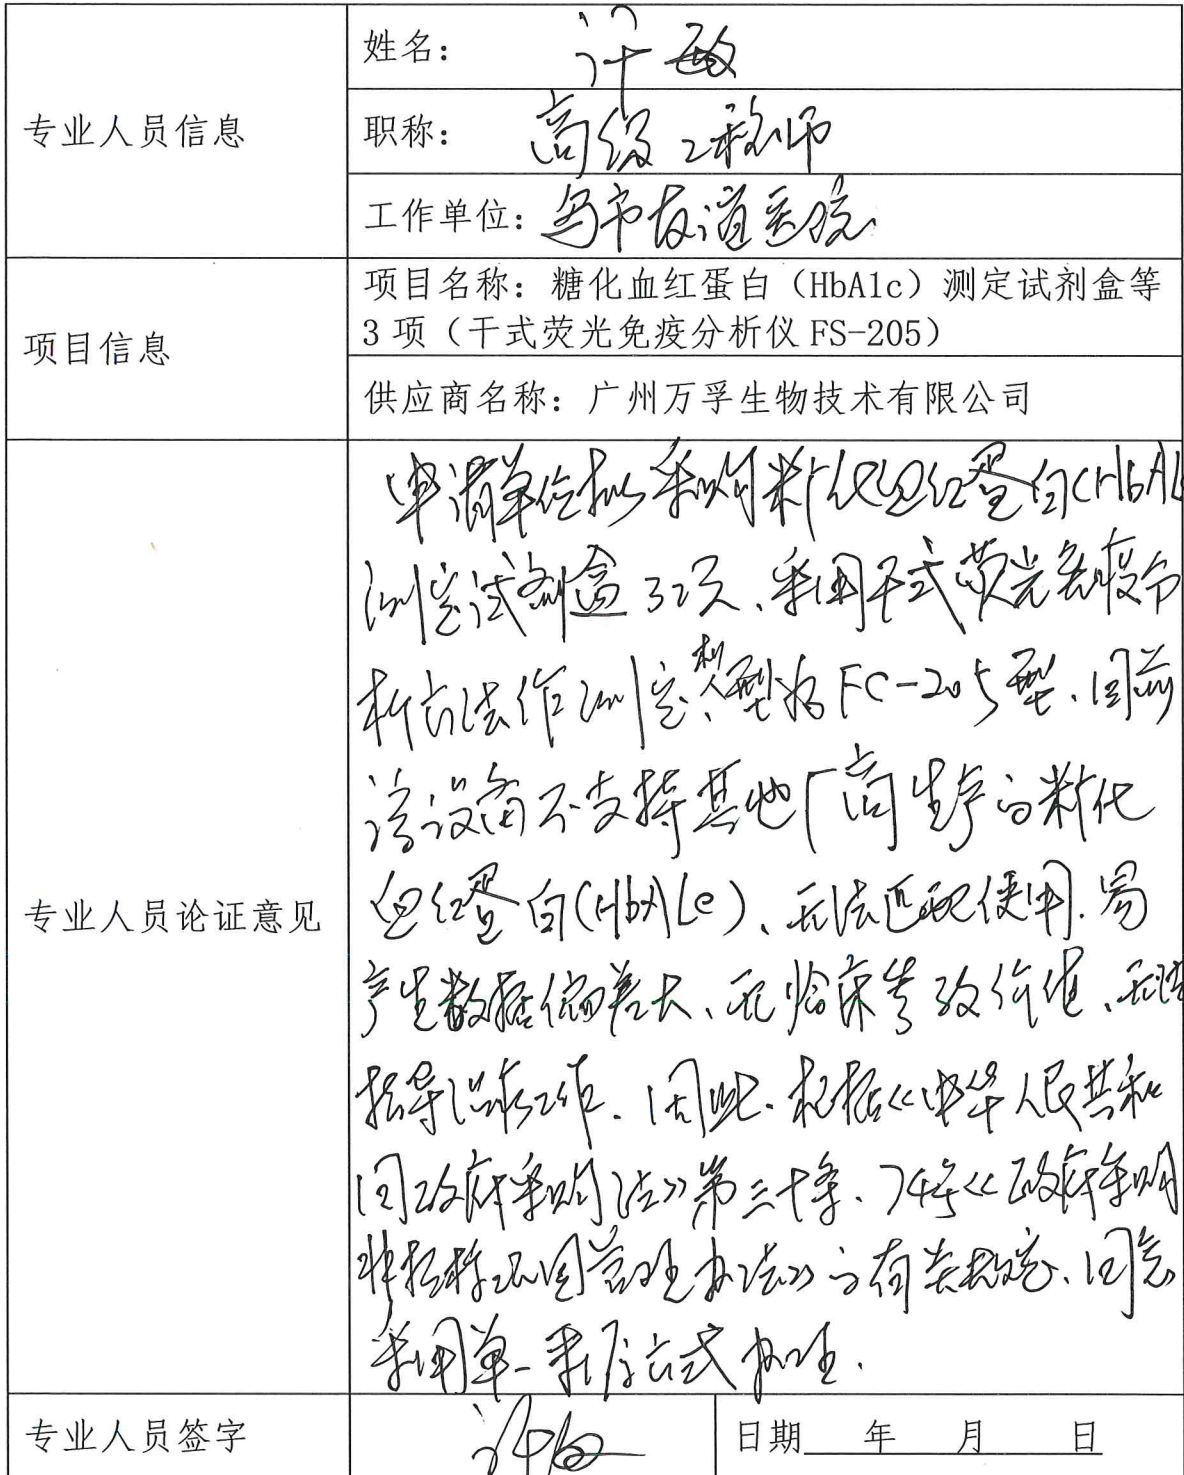 专业人员信息
姓名: 许敏
职称: 高级工程师
工作单位: 乌市友谊医院
项目信息
项目名称：糖化血红蛋白（HbA1c）测定试剂盒等
3 项（干式荧光免疫分析仪 FS-205）
供应商名称：广州万孚生物技术有限公司
专业人员论证意见
申请单位拟采购糖化血红蛋白(HbA1c
测定试剂盒3项、采用干式荧光免疫分
析方法作测定、机型为FC-205型、目前
该设备不支持其他厂商生产的糖化
血红蛋白(HbA1c)、无法匹配使用.易
产生数据偏差大、无临床参考价值、无法
指导临床工作.因此.根据《中华人民共和
国政府采购法》第三十条、74号《政府采购
非招标采购管理办法》的有关规定、同意
采用单一来源方式办理.
专业人员签字
许敏
日期 年 月 日